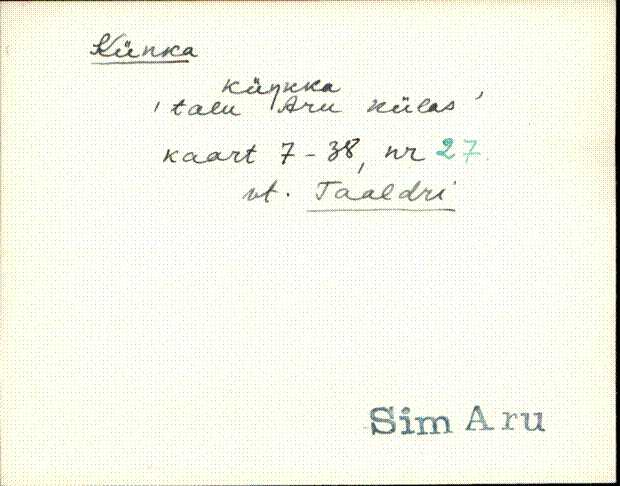 Künka
küŋkka
'talu Aru külas'
kaart 7-38, nr 27.
vt. Taaldri
Sim Aru